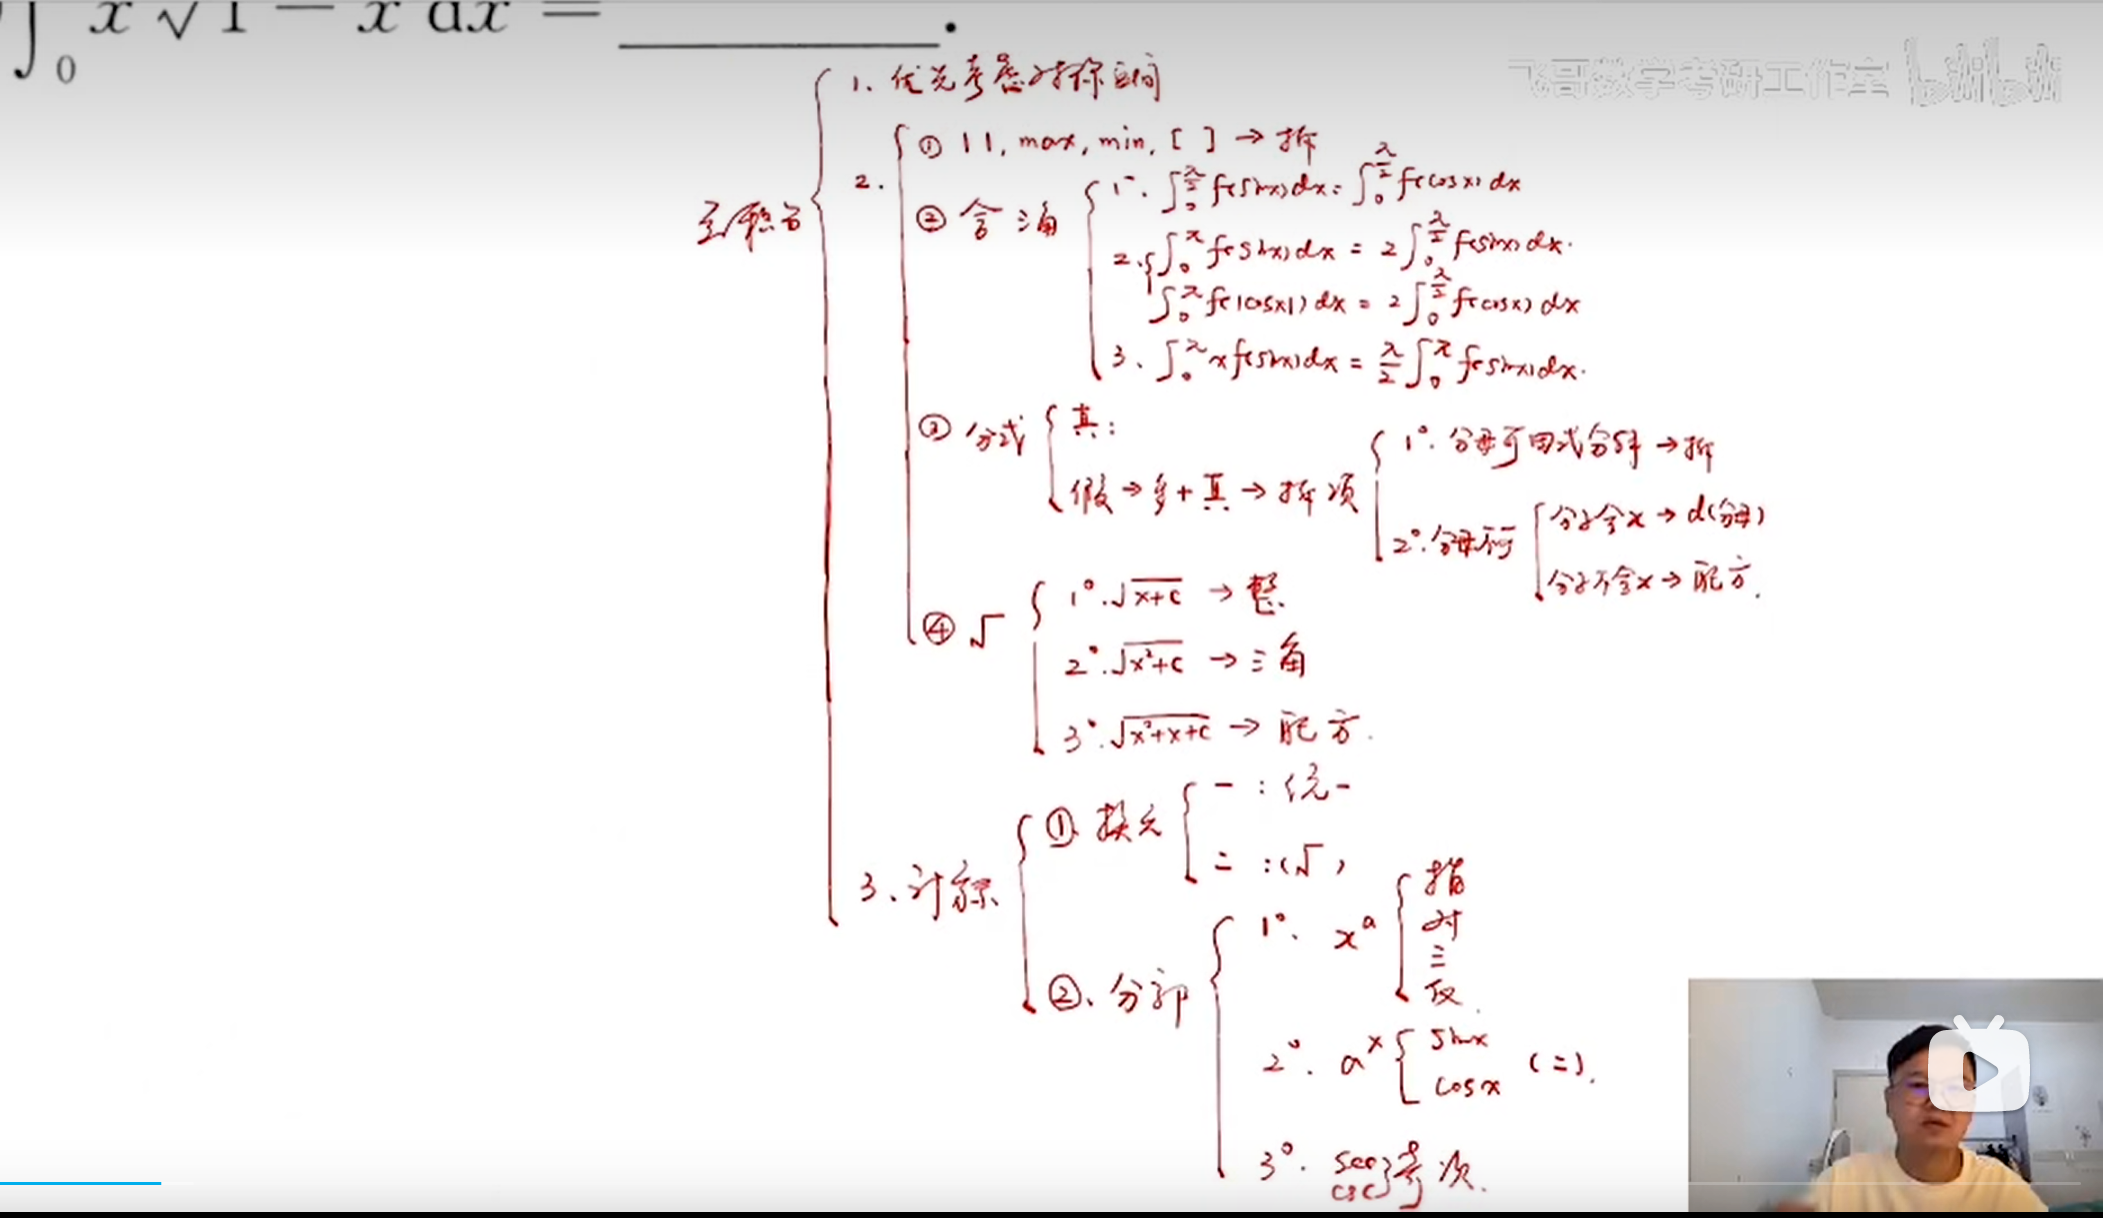 ∫₀ x√1−x dx = ________.
飞哥数学考研工作室 bilibili
1、优先考虑对称区间
2.
① | |, max, min, [ ] → 拆
② 含三角
1°. ∫₀^(π/2) f(sinx)dx = ∫₀^(π/2) f(cosx)dx
2. ∫₀^π f(sinx)dx = 2∫₀^(π/2) f(sinx)dx.
∫₀^π f(|cosx|)dx = 2∫₀^(π/2) f(cosx)dx
3、∫₀^π x f(sinx)dx = π/2 ∫₀^π f(sinx)dx.
③ 分式
真:
假 → 多 + 真 → 拆项
1°. 分母可因式分解 → 拆
2°. 分母不可
分子含x → d(分母)
分子不含x → 配方.
④ √
1°. √x+c → 整.
2°. √x²+c → 三角
3°. √x²+x+c → 配方.
3、计算
① 换元
一: 统一
二: (√ )
②、分部
1°. xᵃ
指
对
三
反.
2°. aˣ
sinx
cosx
(二).
3°. sec
csc
奇次.